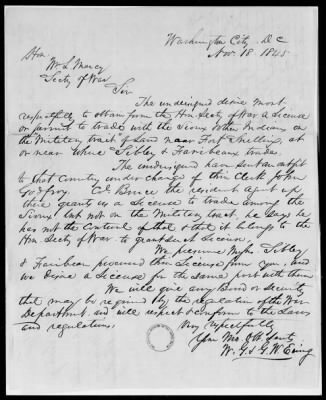 Washington City D C
Nov. 18. 1845
Hon.
Wm L Marcy
Secty of War
Sir
The undersigned desire most
respectfully to obtain from the Hon. Secty of War a License
or permit to trade with the Sioux Indians on
the Military tract of Land near Fort Snelling, at
or near where Sibley & Faribeau trade.
The undersigned have sent an outfit
to that Country under charge of this Clerk John
Godfroy. Col Bruce the resident Agent up
there grants us a License to trade among the
Sioux, but not on the Military tract. he says he
has not the Control of that & that it belongs to the
Hon. Secty of War to grant such License.
We presume Mssrs Sibley
& Faribeau procured their License from you, and
we desire a License for the same post with them
We will give any Bond or security
that may be required by the regulation of the War
Department and will respect & conform to the Laws
and regulations.
Very respectfully
Your Mo. Obt Servts
W. G. & G. W. Ewing